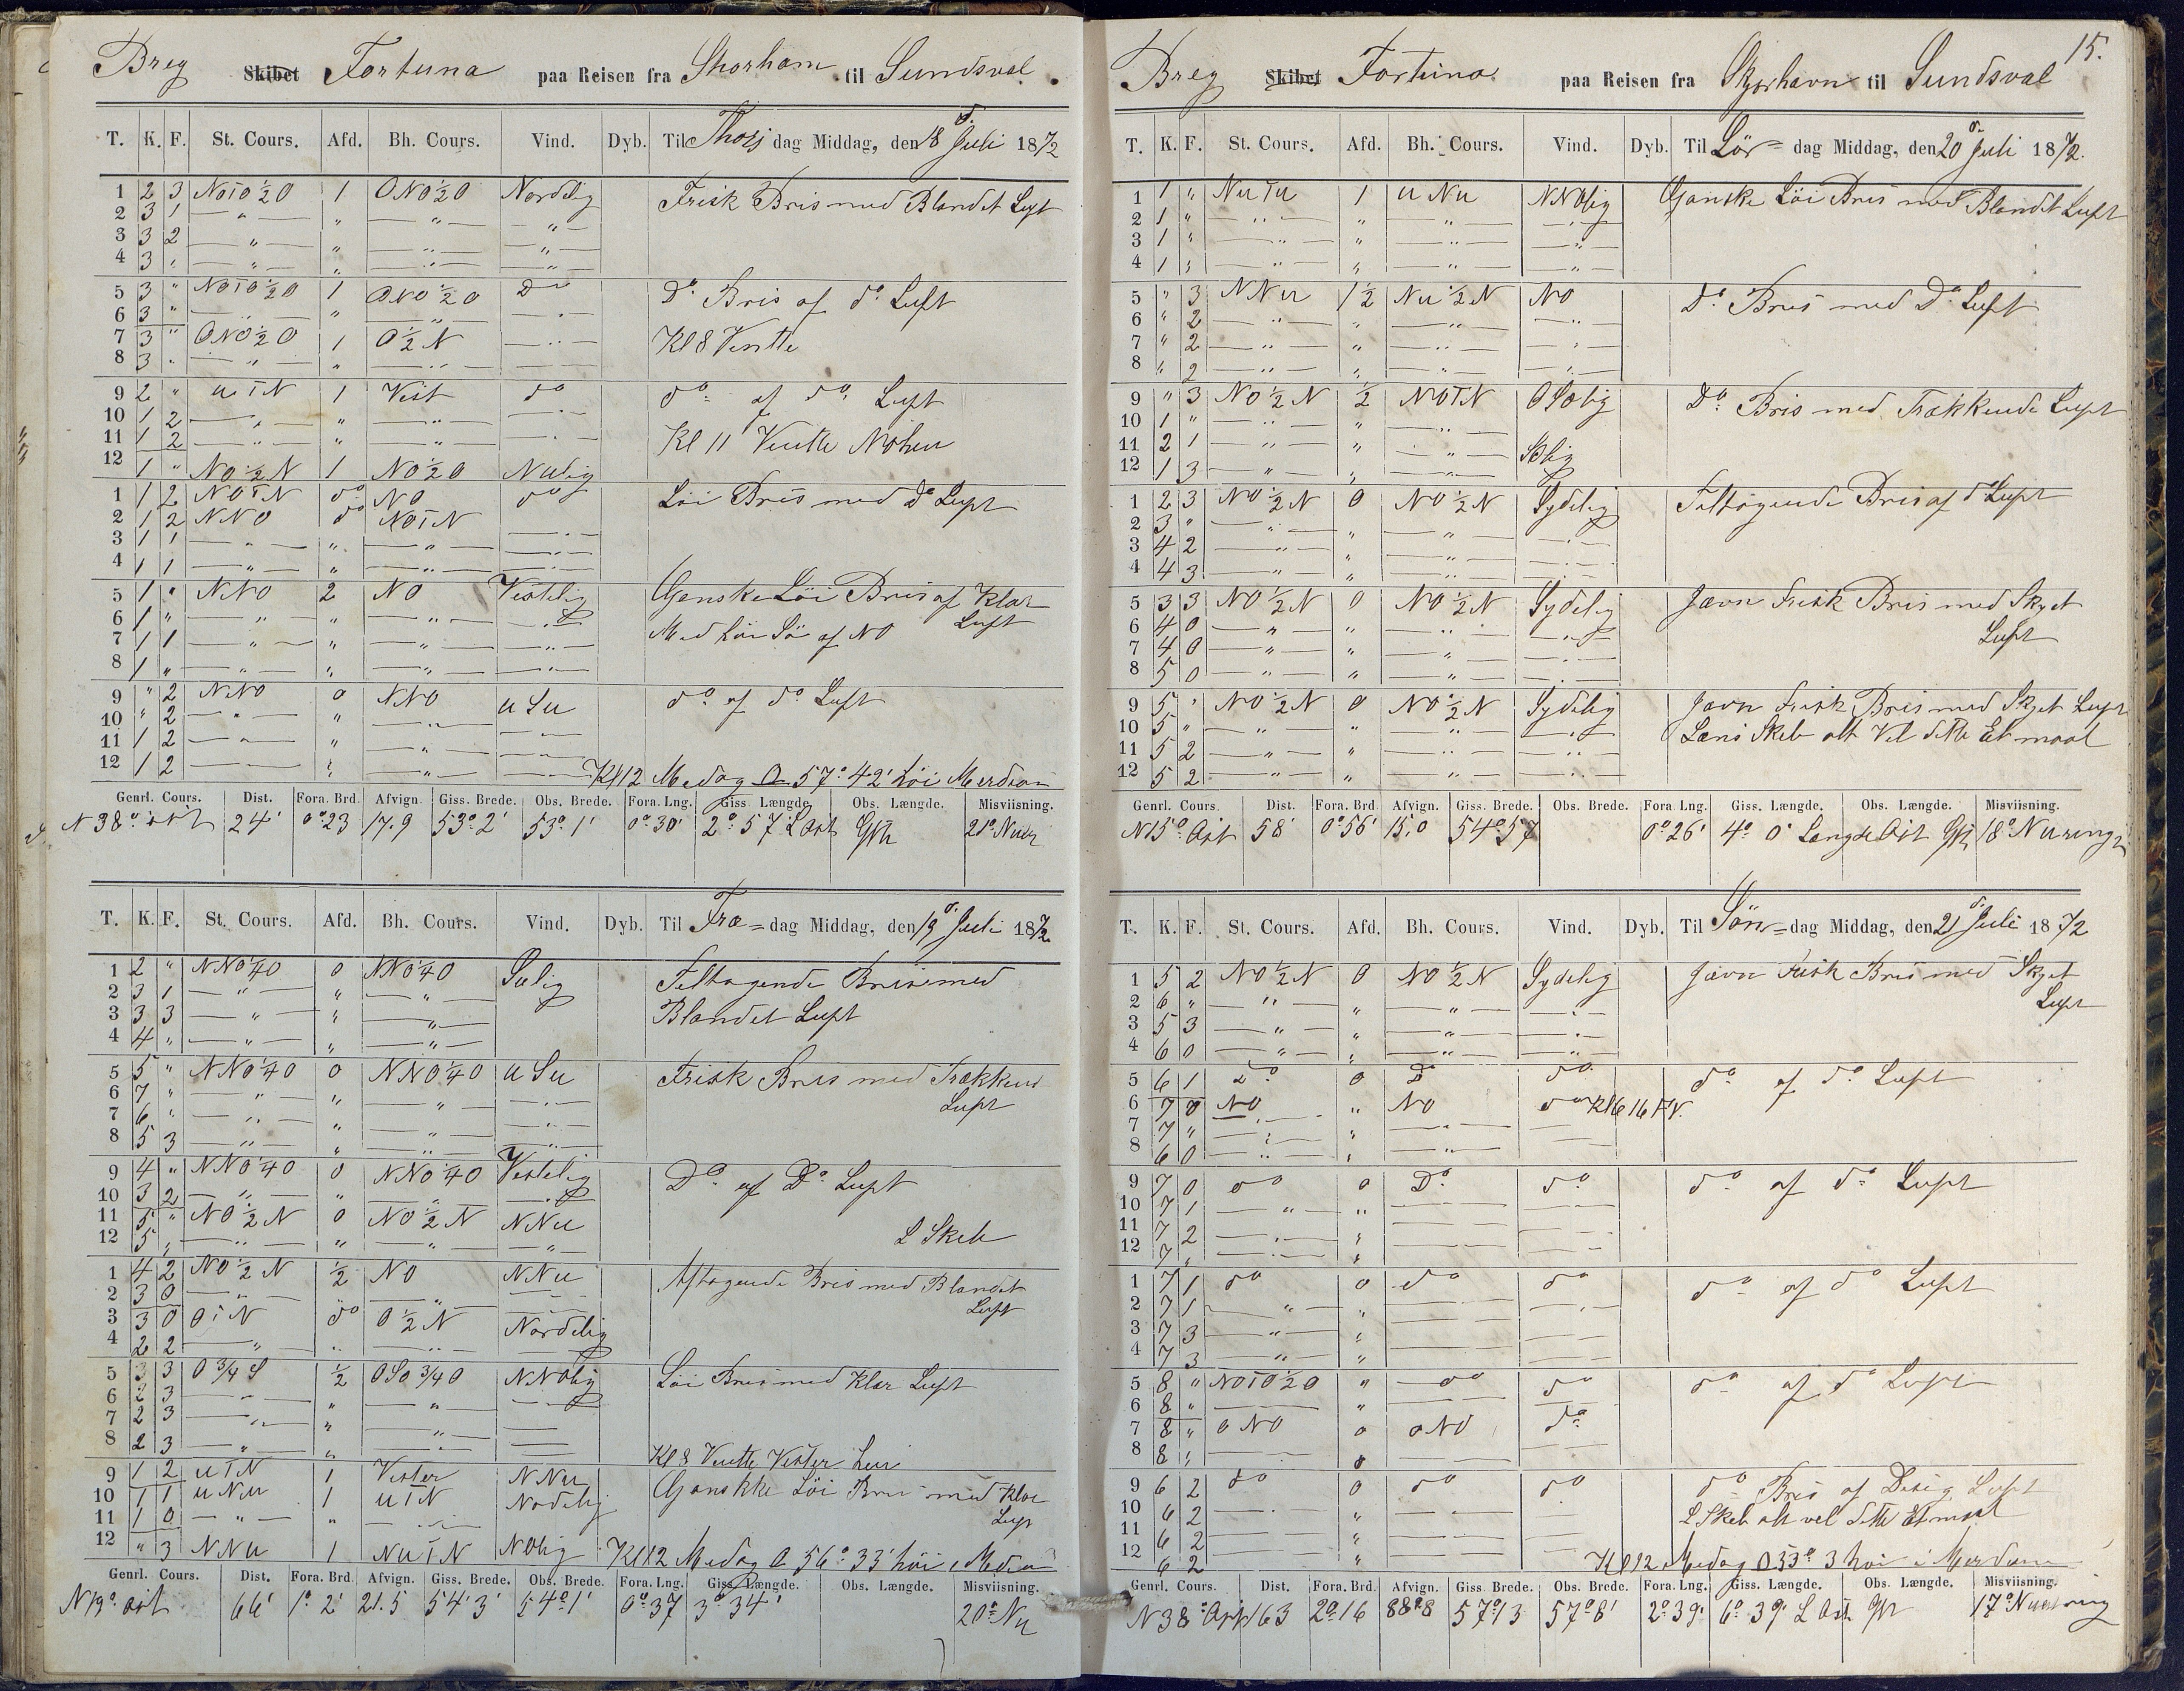 Breg Skibet Fortuna paa Reisen fra Shorham til Sundsval.
T. K. F. St. Cours. Afd. Bh. Cours. Vind. Dyb. Til Thors dag Middag, den 18 d. Juli 1872
1 2 3 NOTO½O 1 ONO½O Nordlig Frisk Bris med Blandet Luft
2 3 1 — " — " — " — — " —
3 3 2 — " — " — " — — " —
4 3 " — " — " — " — — " —
5 3 " NOTO½O 1 ONO½O Do Do Bris af do Luft
6 3 " — " — " — " — — " —
7 3 " ONO½O 1 O½N — " — Kl 8 Vendte
8 3 " — " — " — " — — " —
9 2 " uTN 1 Vest do do af do Luft
10 1 2 — " — " — " — — " —
11 1 2 — " — " — " — — " — Kl 11 Vendte
12 1 " NO½N 1 NO½O Nulig
1 1 2 NOTN do NO do Löi Bris med Do Luft
2 1 2 NNO do NOTN
3 1 1 — " — " — " — — " —
4 1 1 — " — " — " — — " —
5 1 " NNO 2 NO Vestelig Ganske Löi Bris af Klar
6 1 " — " — " — " — — " — Luft
7 1 1 — " — " — " — — " — Med höi Sö af NO
8 1 " — " — " — " — — " —
9 " 2 NNO 0 NNO uSu do af do Luft
10 " 2 — " — " — " — — " —
11 1 2 — " — " — " — — " —
12 1 2 — " — " — " — — " — Kl 12 Medag 57° 42' höi Merdian
Genrl. Cours. Dist. Fora. Brd. Afvign. Giss. Brede. Obs. Brede. Fora. Lng. Giss. Længde. Obs. Længde. Misviisning.
N 38° ost 24' 0° 23 17.9 53° 2' 53° 1' 0° 30' 2° 57 L Ost 21°
T. K. F. St. Cours. Afd. Bh. Cours. Vind. Dyb. Til Fre= dag Middag, den 19 d. Juli 1872
1 2 " NNO¼O 0 NNO¼O Sulig Teltagende Bris med
2 3 1 — " — " — " —
3 3 3 — " — " — " — Blandet Luft
4 4 " — " — " — " —
5 5 " NNO¼O 0 NNO¼O uSu Frisk Bris med Trækkend
6 7 " — " — " — " — — " — Luft
7 6 " — " — " — " — — " —
8 5 3 — " — " — " — — " —
9 4 " NNO¼O 0 NNO¼O Vestelig Do af Do Luft
10 3 2 — " — " — " — — " —
11 5 " NO½N 0 NO½N NNu
12 5 " — " — " — " — — " — L Skeb
1 4 2 NO½N ½ NO NNu Aftagende Bris med Blandet
2 3 0 — " — — " — — " — Luft
3 3 0 OTN do O½N Nordelig
4 2 2 — " — " — " — — " —
5 3 3 O¾S ½ OSO¾O NNOlig Löi Bris med Klar Luft
6 2 3 — " — " — " — — " —
7 2 3 — " — " — " — —
8 2 3 — " — " — " — — Kl 8 Vendte Vester
9 1 2 uTN 1 Vester NNu Ganskke Löi Bris med Klar
10 1 1 uNu 1 uTN Nodelig Luft
11 1 0 — " — " — " —
12 " 3 NNu 1 NuTN NOlig Kl 12 Medag 56° 33' höi
Genrl. Cours. Dist. Fora. Brd. Afvign. Giss. Brede. Obs. Brede. Fora. Lng. Giss. Længde. Obs. Længde. Misviisning.
N 19° ost 66' 1° 2' 21.5 54° 3' 54° 1' 0° 37 3° 34' 20° Nu
15.
Breg Skibet Fortuna paa Reisen fra til Sundsval
T. K. F. St. Cours. Afd. Bh. Cours. Vind. Dyb. Til Lör= dag Middag, den 20 d. Juli 1872.
1 1 " NuTu 1 uNu NNOlig Ganske Löi Bris med Blandet Luft
2 1 " — " — " — " — — " —
3 1 " — " — " — " — — " —
4 1 " — " — " — " — — " —
5 " 3 NNu 1½ Nu½N NO Do Bris med Do Luft
6 " 2 — " — " — " — — " —
7 " 2 — " — " — " — — " —
8 " 2 — " — " — " — — " —
9 " 3 NO½N ½ NOTN OSOlig Do Bris med Trækkende Luft
10 1 " — " — " — " —
11 2 1 — " — " — " — SOlig
12 1 3 — " — " — " —
1 2 3 NO½N 0 NO½N Sydelig Teltagende Bris af do Luft
2 3 " — " — " — " — — " —
3 4 2 — " — " — " — — " —
4 4 3 — " — " — " — — " —
5 3 3 NO½N 0 NO½N Sydelig Jævn Frisk Bris med Skyet
6 4 0 — " — " — " — — " — Luft
7 4 0 — " — " — " — — " —
8 5 0 — " — " — " — — " —
9 5 " NO½N 0 NO½N Sydelig Jævn Frisk Bris med Skyet Luft
10 5 " — " — " — " — — " — Læns Skeb alt Vel dette Etmaal
11 5 2 — " — " — " — — " —
12 5 2 — " — " — " — — " —
Genrl. Cours. Dist. Fora. Brd. Afvign. Giss. Brede. Obs. Brede. Fora. Lng. Giss. Længde. Obs. Længde. Misviisning.
N 15° Ost 58' 0° 56' 15.0 54° 57 0° 26' 4° 0' Længde Ost 18°
T. K. F. St. Cours. Afd. Bh. Cours. Vind. Dyb. Til Sön= dag Middag, den 21 d. Juli 1872
1 5 2 NO½N 0 NO½N Sydelig Jævn Frisk Bris med Skyet
2 6 " — " — " — " — — " — Luft
3 5 3 — " — " — " — — " —
4 6 0 — " — " — " — — " —
5 6 1 do 0 Do do do af do Luft
6 7 0 NO " NO do
7 7 " — " — " — " — —
8 6 0 — " — " — " — —
9 7 0 do 0 Do do do af do Luft
10 7 1 — " — " — —
11 7 2 — " — " — —
12 7 " — " — " — —
1 7 1 do 0 do do do af do Luft
2 7 1 — " — " — —
3 7 3 — " — " — —
4 7 3 — " — " — —
5 8 " NOTO½O " do do do af do Luft
6 8 " — " — —
7 8 " ONO 0 ONO do
8 8 " — 0 — —
9 6 2 do 0 do do do Bris af Disig Luft
10 6 2 — " — — L Skeb alt vel dette Etmaal
11 6 2 — " — —
12 6 2 — " — — Kl 12 Medag 53° 3 höi i Merdian
Genrl. Cours. Dist. Fora. Brd. Afvign. Giss. Brede. Obs. Brede. Fora. Lng. Giss. Længde. Obs. Længde. Misviisning.
N 38° Ost 163 2° 16 88.8 57° 13 57° 8' 2° 39' 6° 39' L Ost 17°